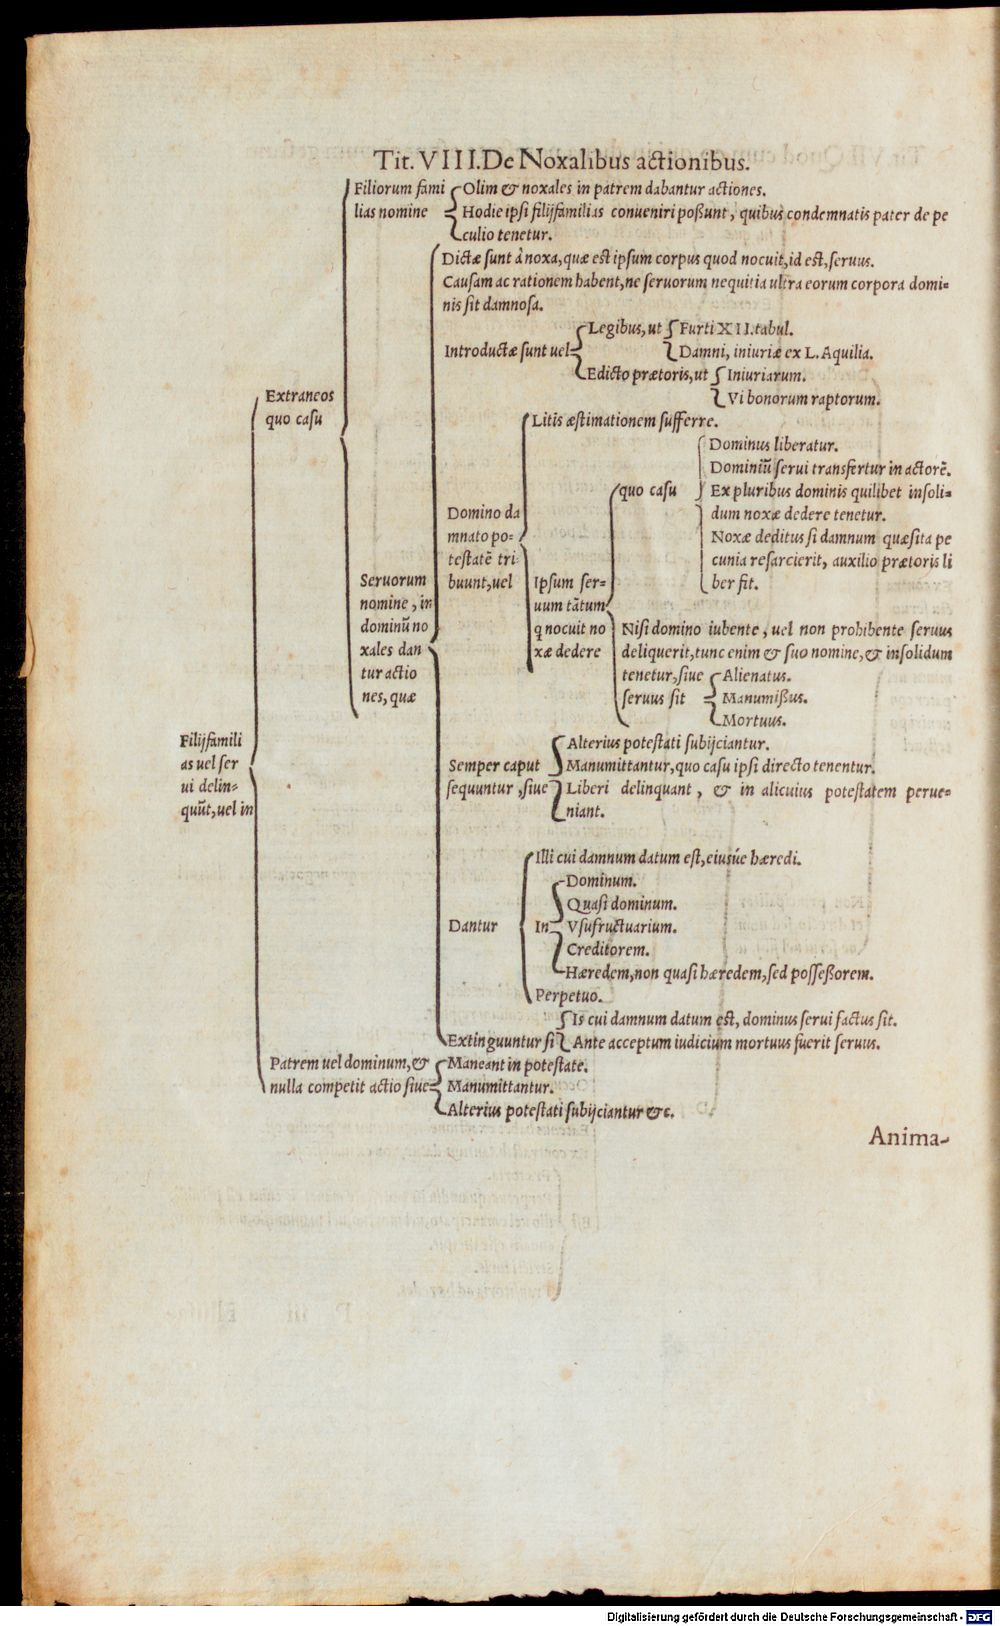 Tit. VIII. De Noxalibus actionibus.
Filiorum fami
lias nomine
Olim & noxales in patrem dabantur actiones.
Hodie ipsi filijfamilias conueniri poßunt, quibus condemnatis pater de pe
culio tenetur.
Extraneos
quo casu
Seruorum
nomine, in
dominũ no
xales dan
tur actio
nes, quæ
Dictæ sunt à noxa, quæ est ipsum corpus quod nocuit, id est, seruus.
Causam ac rationem habent, ne seruorum nequitia ultra eorum corpora domi-
nis sit damnosa.
Introductæ sunt uel
Legibus, ut
Furti XII. tabul.
Damni, iniuriæ ex L. Aquilia.
Edicto prætoris, ut
Iniuriarum.
Vi bonorum raptorum.
Domino da
mnato po-
testatẽ tri
buunt, uel
Litis æstimationem sufferre.
Ipsum ser-
uum tãtum
q nocuit no
xæ dedere
quo casu
Dominus liberatur.
Dominiũ serui transfertur in actorẽ.
Ex pluribus dominis quilibet insoli-
dum noxæ dedere tenetur.
Noxæ deditus si damnum quæsita pe
cunia resarcierit, auxilio prætoris li
ber fit.
Nisi domino iubente, uel non prohibente seruus
deliquerit, tunc enim & suo nomine, & insolidum
tenetur, siue
seruus sit
Alienatus.
Manumißus.
Mortuus.
Filijfamili
as uel ser
ui delin-
quũt, uel in
Semper caput
sequuntur, siue
Alterius potestati subijciantur.
Manumittantur, quo casu ipsi directo tenentur.
Liberi delinquant, & in alicuius potestatem perue-
niant.
Dantur
Illi cui damnum datum est, eiusúe hæredi.
In
Dominum.
Quasi dominum.
Vsufructuarium.
Creditorem.
Hæredem, non quasi hæredem, sed posseßorem.
Perpetuo.
Extinguuntur si
Is cui damnum datum est, dominus serui factus sit.
Ante acceptum iudicium mortuus fuerit seruus.
Patrem uel dominum, &
nulla competit actio siue
Maneant in potestate.
Manumittantur.
Alterius potestati subijciantur &c.
Anima-
Digitalisierung gefördert durch die Deutsche Forschungsgemeinschaft - DFG